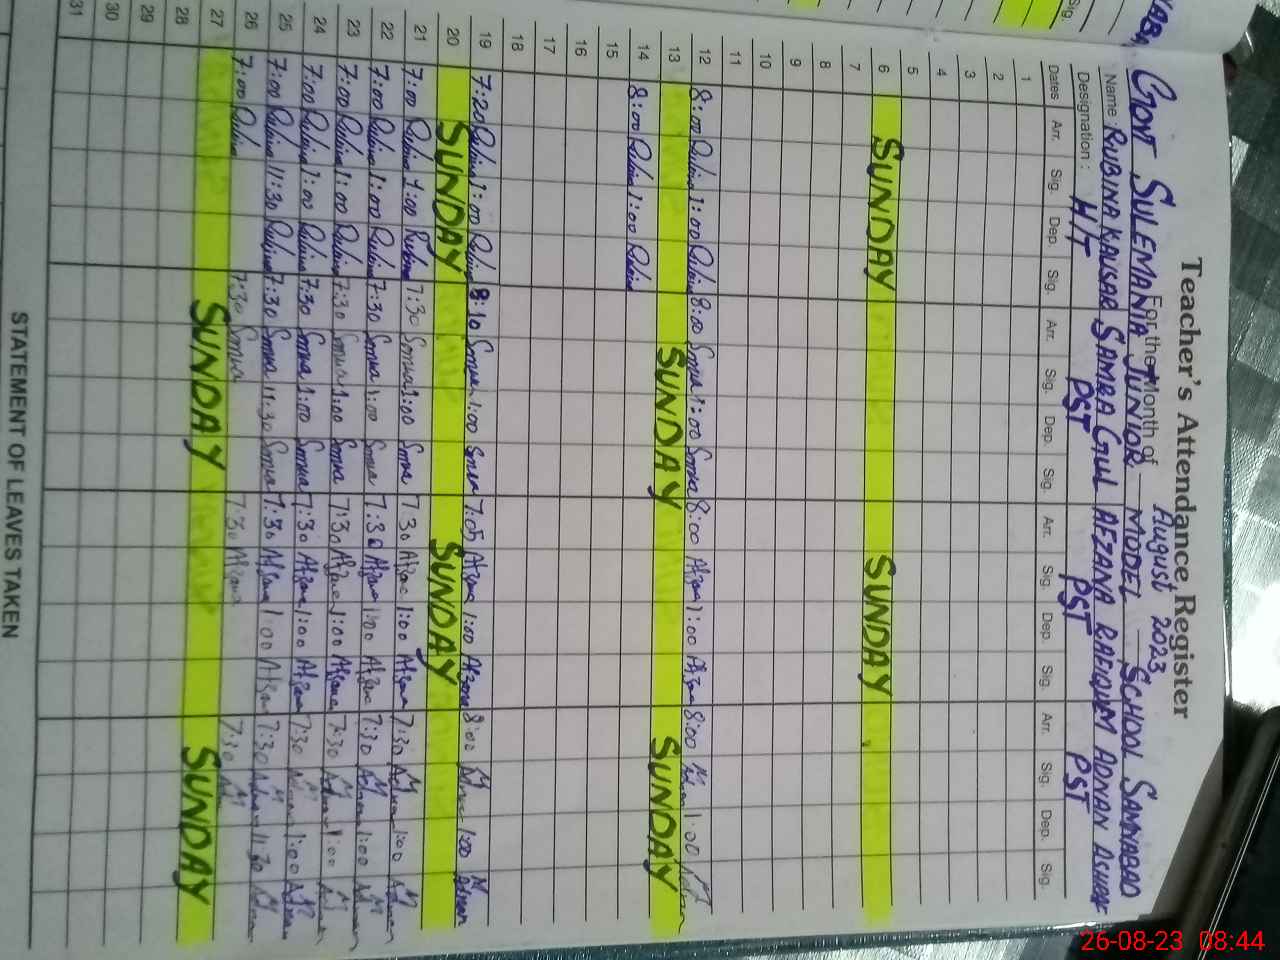 Teacher's Attendance Register
For the Month of August 2023
GOVT SULEMANIA JUNIOR MODEL SCHOOL SAMNABAD
Name: RUBINA KAUSAR SAMRA GUL AFZANA RAFIQUE M ADNAN ASHRAF
Designation: H/T PST PST PST
Dates Arr. Sig. Dep. Sig. Arr. Sig. Dep. Sig. Arr. Sig. Dep. Sig. Arr. Sig. Dep. Sig.
1
2
3
4
5
6 SUNDAY SUNDAY
7
8
9
10
11
12 8:00 Rubina 1:00 Rubina 8:00 1:00 8:00 1:00 8:00 1:00
13 SUNDAY SUNDAY
14 8:00 Rubina 1:00 Rubina
15
16
17
18
19 7:20 Rubina 1:00 Rubina 8:10 1:00 7:05 1:00 8:00 1:00 M Adnan
20 SUNDAY SUNDAY
21 7:00 Rubina 1:00 Rubina 7:30 1:00 7:30 1:00 7:30 M Adnan 1:00 M Adnan
22 7:00 Rubina 1:00 Rubina 7:30 1:00 7:30 1:00 7:30 M Adnan 1:00 M Adnan
23 7:00 Rubina 1:00 Rubina 7:30 1:00 7:30 1:00 7:30 M Adnan 1:00 M Adnan
24 7:00 Rubina 1:00 Rubina 7:30 1:00 7:30 1:00 7:30 M Adnan 1:00 M Adnan
25 7:00 Rubina 11:30 Rubina 7:30 11:30 7:30 1:00 7:30 M Adnan 11:30 M Adnan
26 7:00 Rubina 7:30 7:30 7:30 M
27 SUNDAY SUNDAY
28
29
30
31
STATEMENT OF LEAVES TAKEN
Sig.
26-08-23 08:44